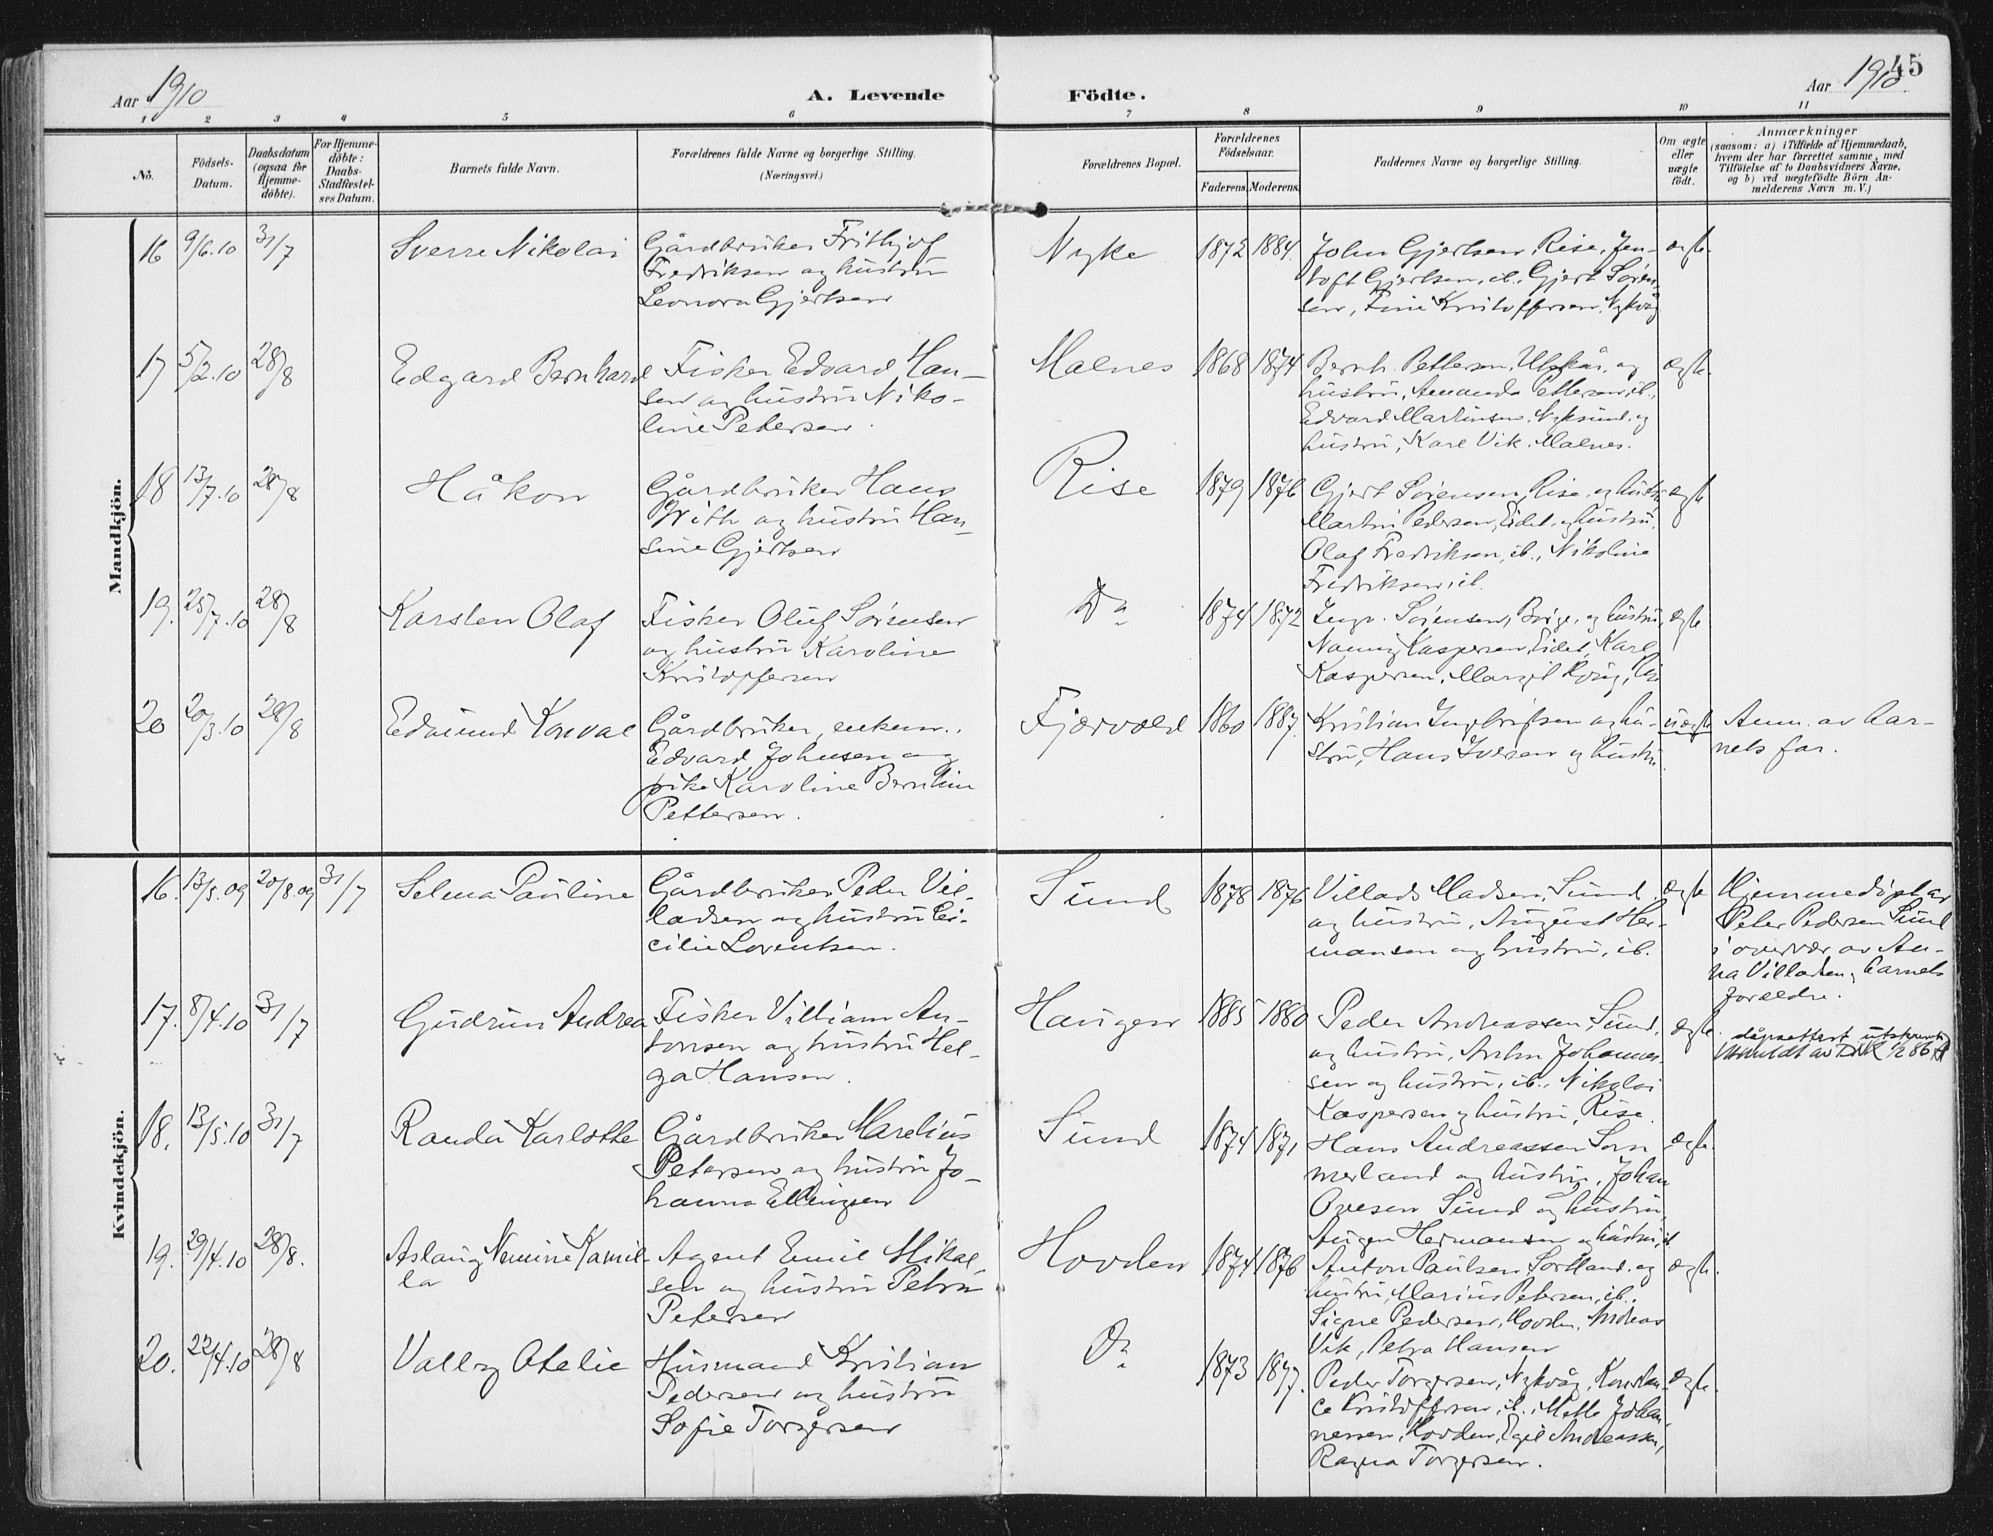 Aar 1910
A. Levende Födte.
Aar 1910.
45
1 2 3 4 5 6 7 8 9 10 11
No.
Födsels-
Datum.
Daabsdatum
(ogsaa for
Hjemme-
döbte).
For Hjemme-
döbte:
Daabs-
Stadfæstel-
ses Datum.
Barnets fulde Navn.
Forældrenes fulde Navne og borgerlige Stilling.
(Næringsvei.)
Forældrenes Bopæl.
Forældrenes
Födselsaar.
Faderens. Moderens.
Faddernes Navne og borgerlige Stilling.
Om ægte
eller
uægte
födt.
Anmærkninger
(saasom: a) i Tilfælde af Hjemmedaab,
hvem der har forrettet samme, med
Tilföielse af to Daabsvidners Navne.
og b) ved uægtefödte Börn An-
melderens Navn m. V.)
Mandkjön.
16 9/6.10 31/7 Sverre Nikolai
Gårdbruker Frithjof
Fredriksen og hustru
Leonora Gjertsen
Nyke 1872 1884.
John Gjertsen Rise, Jen-
toft Gjertsen, ib., Gjert Søren-
sen, Fine Kristoffersen, Nykvåg
ægte.
17 5/2.10 28/8 Edgard Bernhard
Fisker Edvard Han-
sen og hustru Niko-
line Petersen.
Malnes 1868 1874
Bernh. Pettersen, Utskår, og
hustru, Amanda Pettersen, ib.,
Edvard Martinsen, Nyksund, og
hustru, Karl Vik, Malnes.
ægte.
18 13/7.10 28/8 Håkon
Gårdbruker Hans
With og hustru Han-
sine Gjertsen
Rise 1879 1876
Gjert Sørensen, Rise, og hustru,
Martin Pedersen, Eidet, og hustru,
Olaf Fredriksen, ib., Nikoline
Fredriksen, ib.
ægte
19. 25/7.10 28/8 Karsten Olaf
Fisker Oluf Sørensen
og hustru Karoline
Kristoffersen
Do 1874 1872
Ingv. Sørensen, Børge, og hustru,
Nanny Kaspersen, Eidet, Karl
Kaspersen, Margit
ægte
20 20/3.10 28/8 Edmund Konval
Gårdbruker, enkem.,
Edvard Johnsen og
pike Karoline Bernthin
Pettersen.
Fjærvold 1860 1887.
Kristian Ingebrigtsen og hu-
stru, Hans Iversen og hustru
uægte
Anm. av bar-
nets far.
Kvindekjön.
16. 13/5.09 20/8.09 31/7 Selma Pauline
Gårdbruker Peder Vil-
ladsen og hustru Ce-
cilie Lorentsen.
Sund 1878 1876
Villads Madsen, Sund,
og hustru, August Her-
mansen og hustru, ib.
ægte
Hjemmedøpt av
Peter Pedersen Sund
i overvær av An-
na Villadsen, barnets
forældre.
17. 8/4.10 31/7 Gudrun Andrea
Fisker Villiam An-
tonsen og hustru Hel-
ga Hansen.
Haugen 1885 1880
Peder Andreassen, Sund,
og hustru, Anton Johannes-
sen og hustru, ib., Nikolai
Kaspersen og hustru, Rise.
ægte.
dåpsattest utskrevet
18. 13/5.10 31/7 Randa Karlotte
Gårdbruker Marelius
Petersen og hustru Jo-
hanna Ellingsen
Sund 1874 1871
Hans Andreassen Som
merland og hustru, Johan
Ovesen Sund og hustru,
Augen Hermansen og hustru, ib
ægte.
19. 29/4.10 28/8. Aslaug Nemine Kamil-
la
Agent Emil Mikal-
sen og hustru Petra
Petersen
Hovden 1874 1876
Anton Paulsen Sortland, og
hustru, Marius Petersen, ib.,
Signe Pedersen, Hovden, Andreas
Vik, Petra Hansen
ægte.
20. 22/4.10 28/8 Valby Otelie
Husmand Kristian
Pedersen og hustru
Sofie Torgersen
Do 1873 1877.
Peder Torgersen, Nykvåg, Konstan-
ce Kristoffersen, ib., Mette Johan-
nessen, Hovden, Egil Andreassen,
Ragna Torgersen.
ægte.